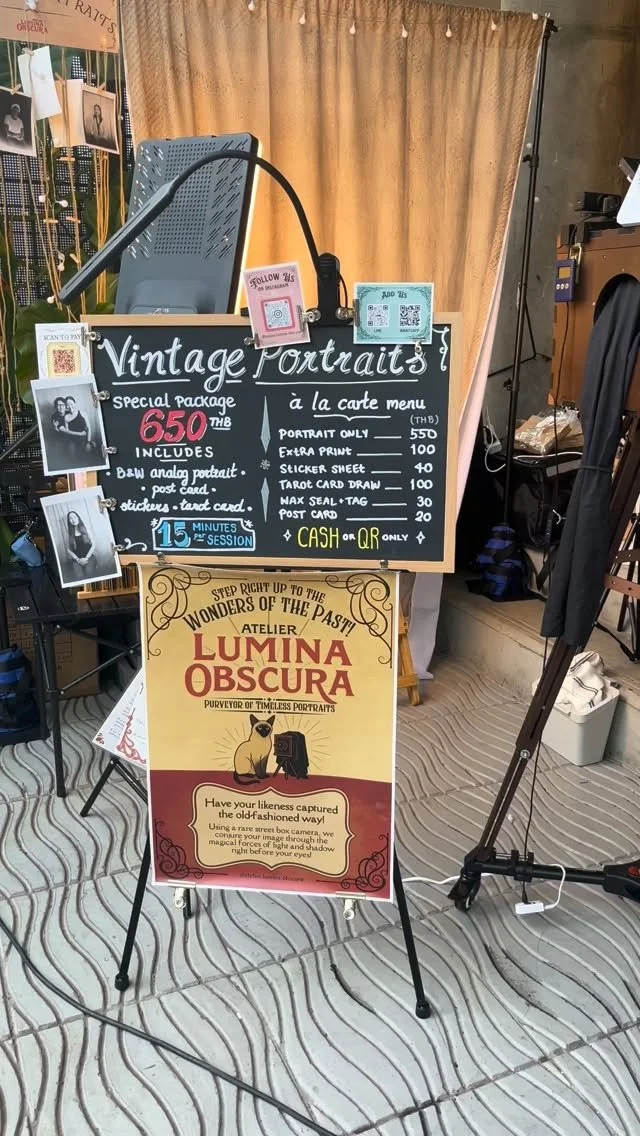 LUMINA
OBSCURA
FOLLOW US
ON INSTAGRAM
ADD US
LINE
WHATSAPP
SCAN TO PAY
Vintage Portraits
SPECIAL PACKAGE
650 THB
INCLUDES
• B&W analog portrait •
• post card •
• stickers • tarot card •
15 MINUTES
PER SESSION
à la carte menu
(THB)
PORTRAIT ONLY 550
EXTRA PRINT 100
STICKER SHEET 40
TAROT CARD DRAW 100
WAX SEAL + TAG 30
POST CARD 20
CASH OR QR ONLY
STEP RIGHT UP TO THE
WONDERS OF THE PAST!
ATELIER
LUMINA
OBSCURA
PURVEYOR OF TIMELESS PORTRAITS
Have your likeness captured
the old-fashioned way!
Using a rare street box camera, we
conjure your image through the
magical forces of light and shadow
right before your eyes!